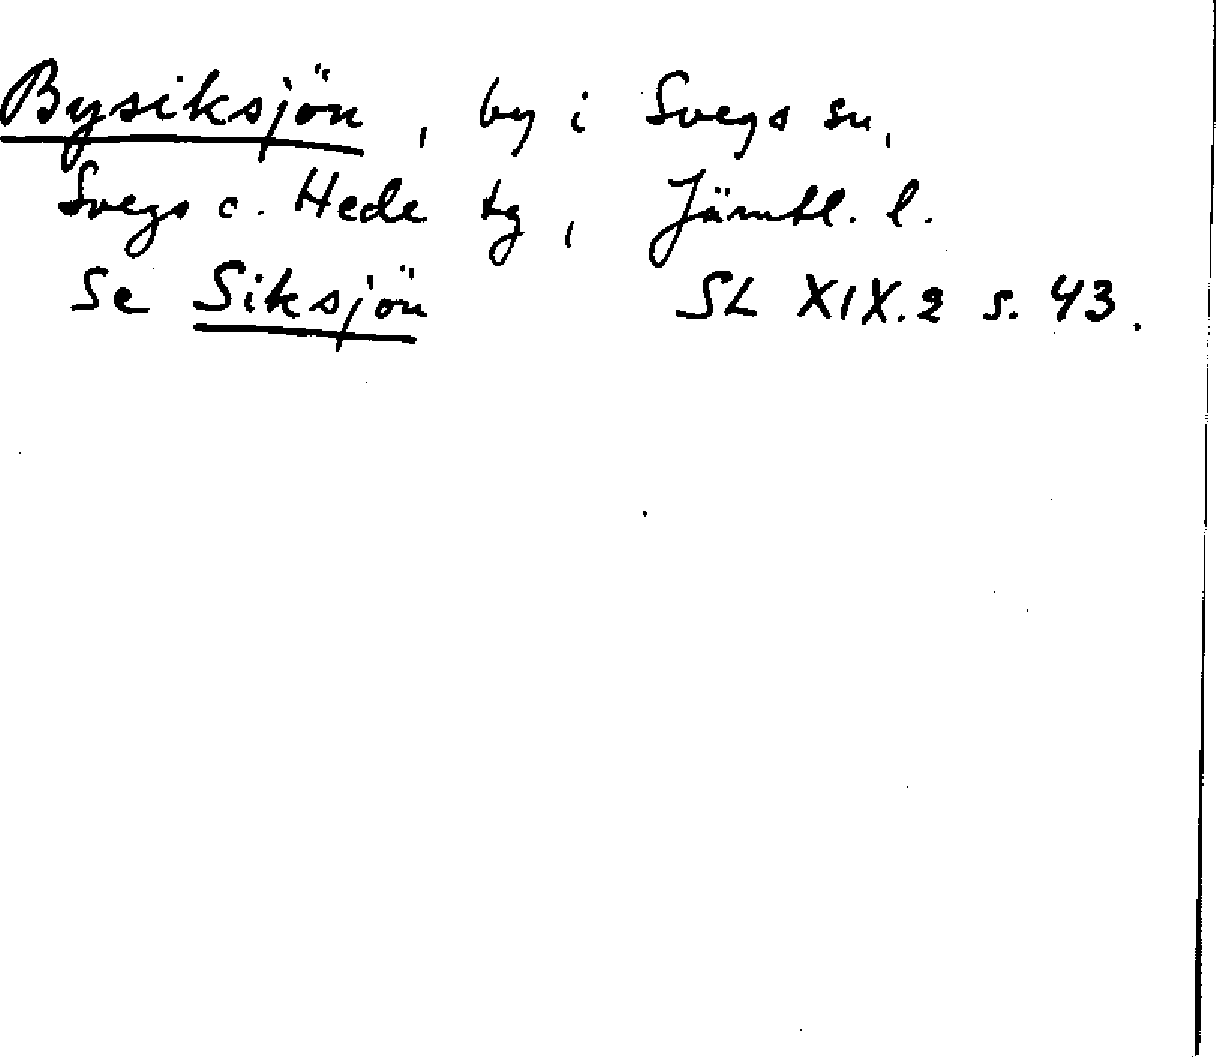 Bysiksjön, by i Svegs sn,
Svegs o. Hede tg, Jämtl. l.
Se Siksjön SL XIX.2 s. 43.